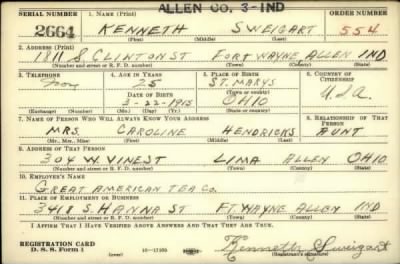 ALLEN CO. 3-IND
SERIAL NUMBER 1. NAME (Print) ORDER NUMBER
2664 KENNETH SWEIGART 554
(First) (Middle) (Last)
2. ADDRESS (Print)
1811 S. CLINTON ST FORT WAYNE ALLEN IND
(Number and street or R. F. D. number) (Town) (County) (State)
3. TELEPHONE 4. AGE IN YEARS 5. PLACE OF BIRTH 6. COUNTRY OF CITIZENSHIP
25 ST. MARYS
DATE OF BIRTH (Town or county)
3-22-1915 OHIO U.S.A
(Exchange) (Number) (Mo.) (Day) (Yr.) (State or country)
7. NAME OF PERSON WHO WILL ALWAYS KNOW YOUR ADDRESS 8. RELATIONSHIP OF THAT PERSON
MRS. CAROLINE HENDRICKS AUNT
(Mr., Mrs., Miss) (First) (Middle) (Last)
9. ADDRESS OF THAT PERSON
304 W. VINE ST LIMA ALLEN OHIO
(Number and street or R. F. D. number) (Town) (County) (State)
10. EMPLOYER'S NAME
GREAT AMERICAN TEA CO.
11. PLACE OF EMPLOYMENT OR BUSINESS
3418 S. HANNA ST FT. WAYNE ALLEN IND
(Number and street or R. F. D. number) (Town) (County) (State)
I AFFIRM THAT I HAVE VERIFIED ABOVE ANSWERS AND THAT THEY ARE TRUE.
REGISTRATION CARD
D. S. S. Form 1 16-17105 Kenneth Sweigart